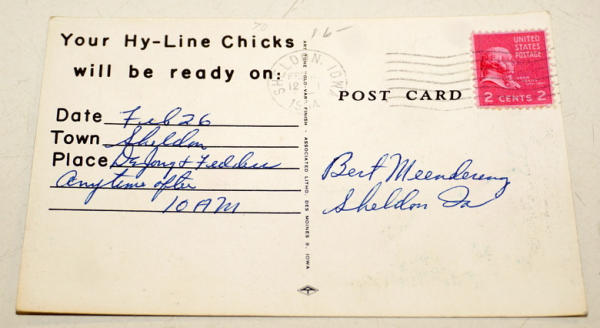 Your Hy-Line Chicks
will be ready on:
Date Feb 26
Town Sheldon
Place DeJong & Fedders
Anytime after
10 AM
ART TONE "OLD-VAR" FINISH - ASSOCIATED LITHO. DES MOINES 9, IOWA
SHELDON, IOWA
POST CARD
UNITED
STATES
POSTAGE
2 CENTS 2
Bert Meendering
Sheldon Ia